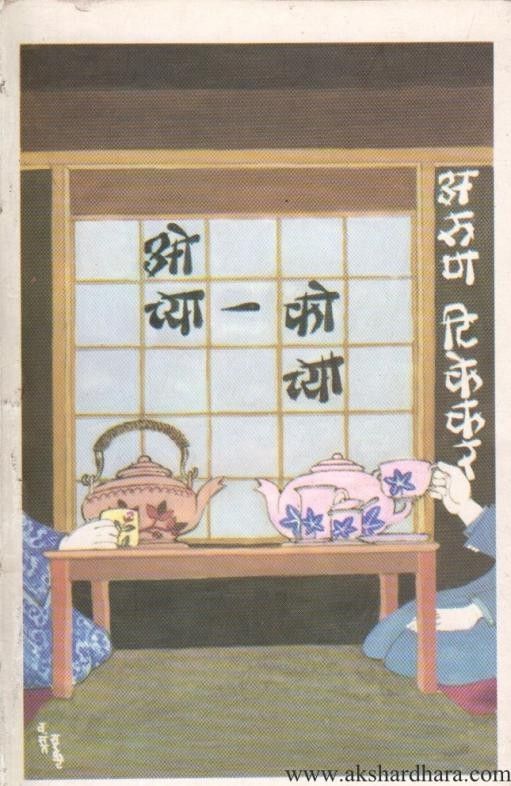 ओ
च्या – को
च्या
अरुण टिकेकर
www.akshardhara.com